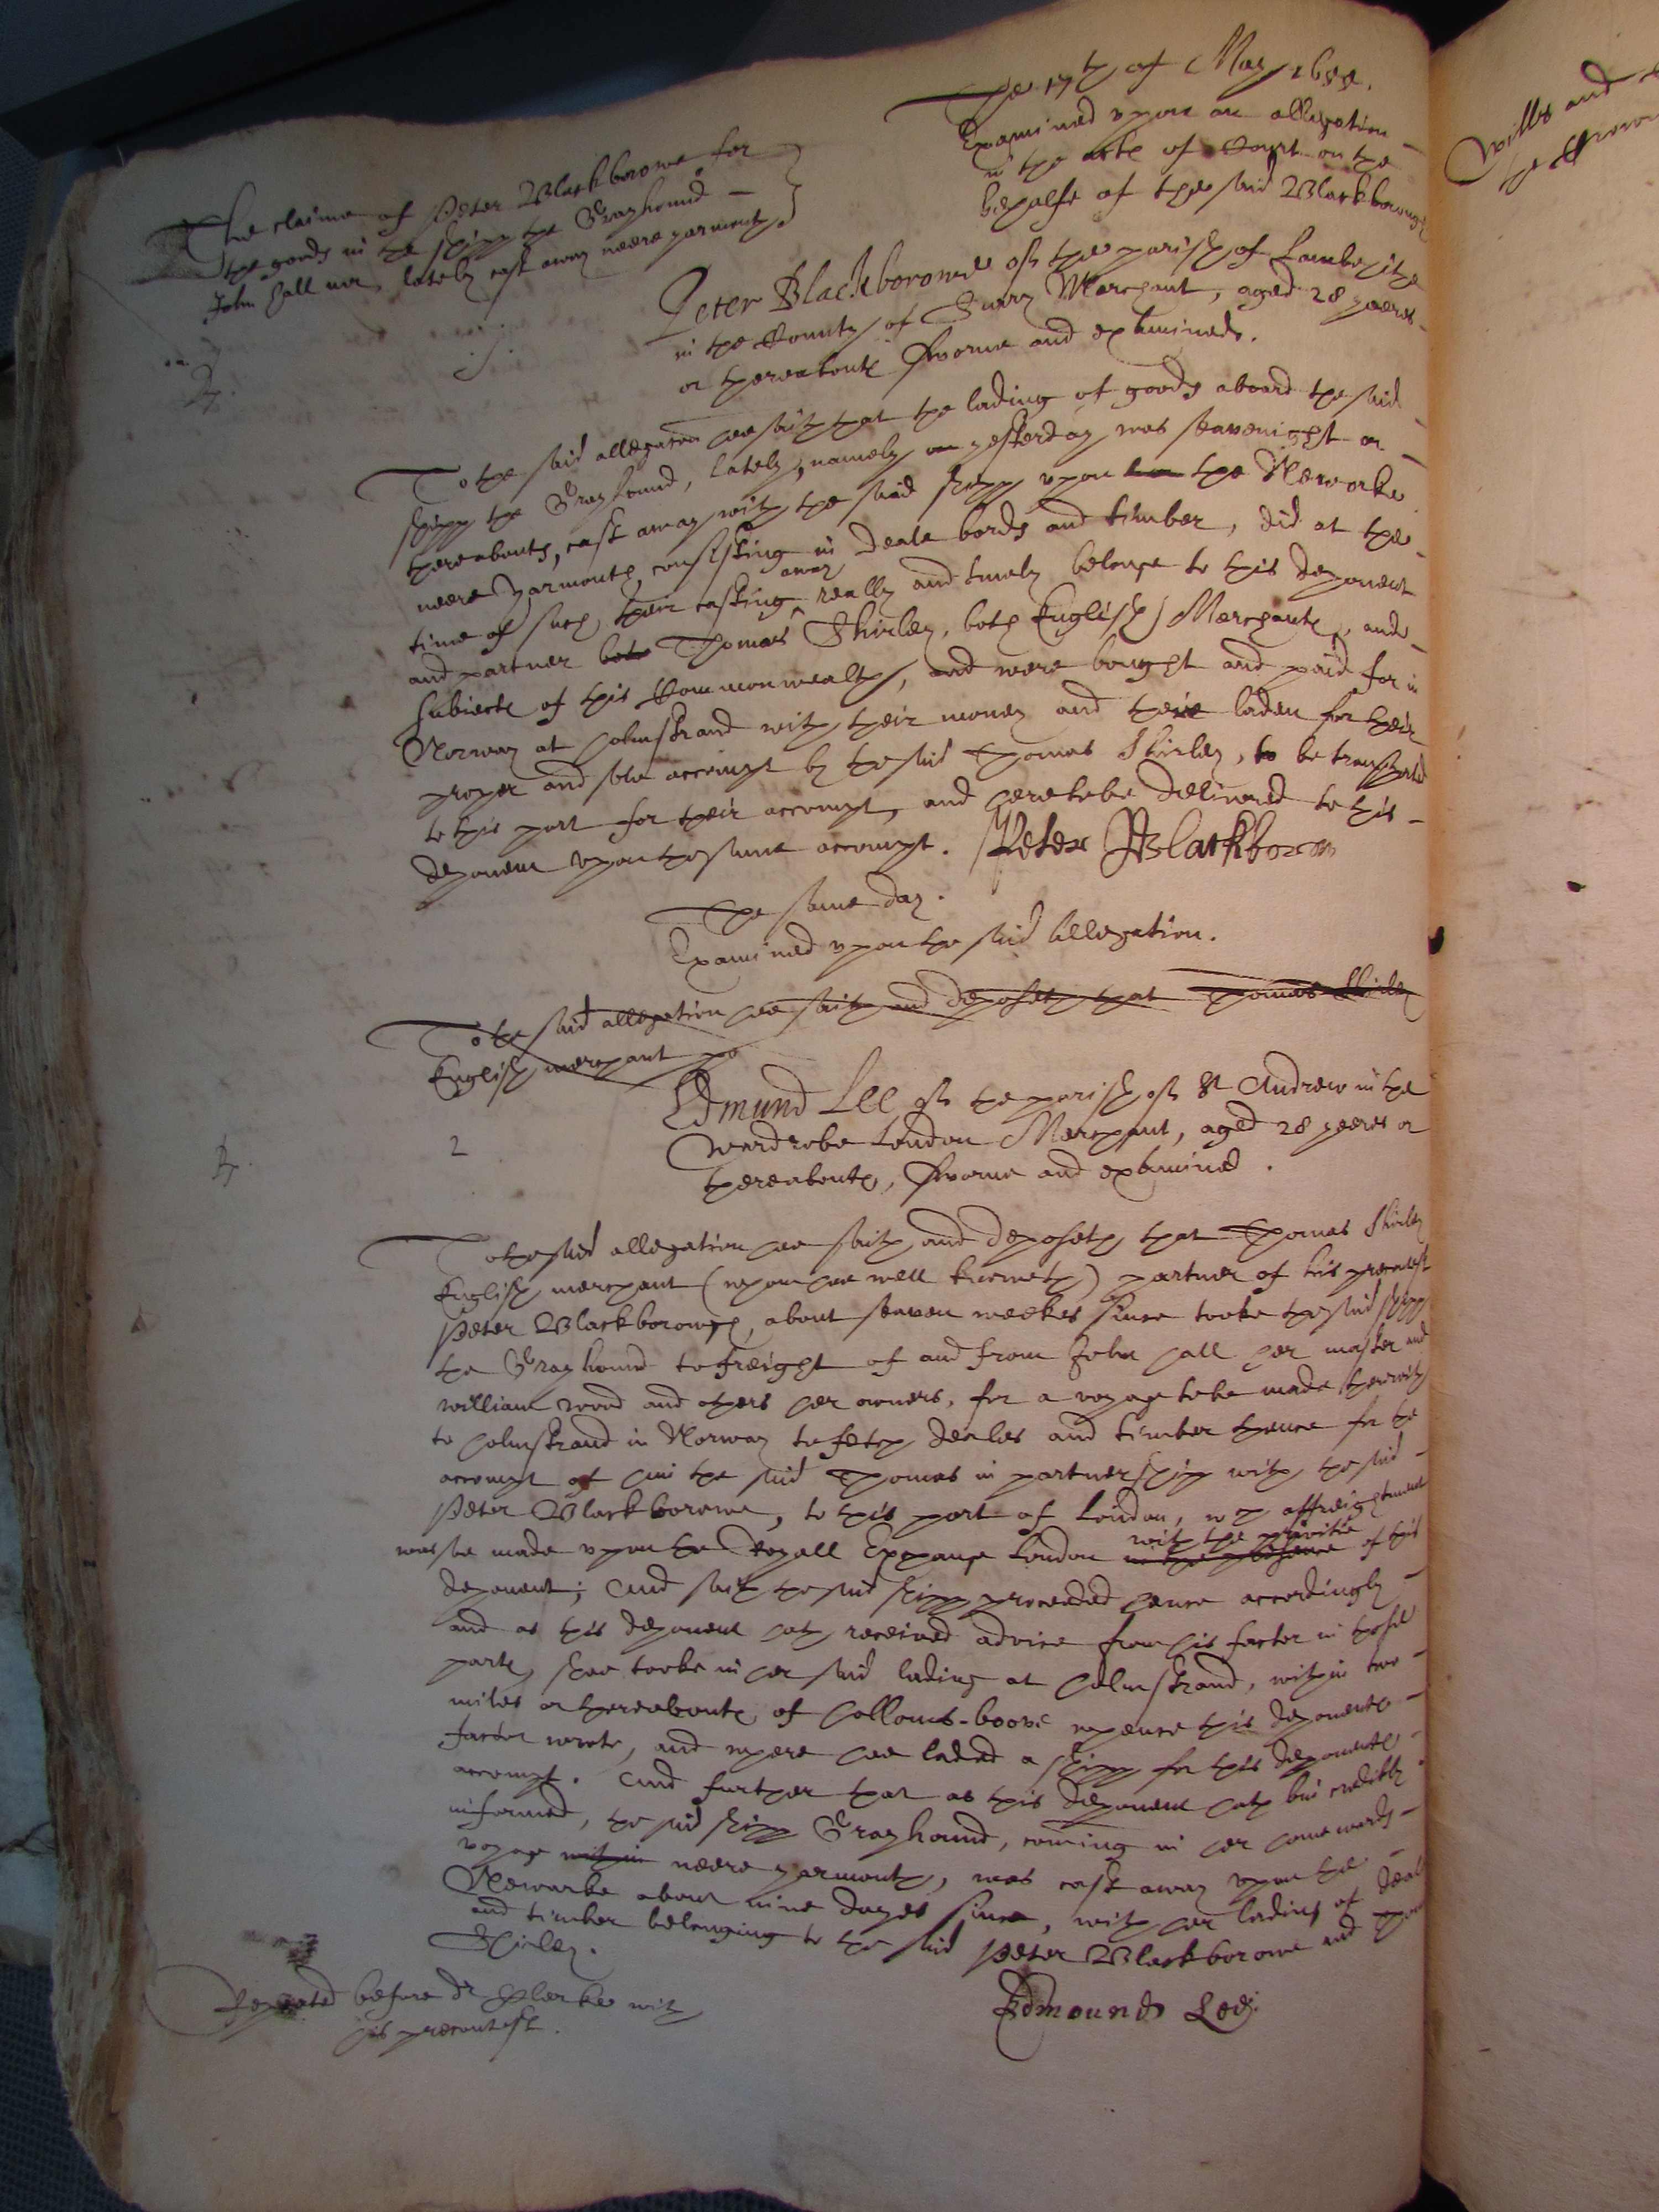 The 17th of May 1655.
Examined upon an allegation
in the acts of Court on the
behalfe of the said Blackborough
The claime of Peter Blackborowe for
the goods in the shipp the Grayhound
John Hall mr, lately cast away neere yarmouth.
Peter Blackborowe of the parish of Lambehithe
in the County of Surry Merchant, aged 28 yeeres
or thereabouts sworne and examined.
1.
To the said allegation hee saith that the lading of goods aboard the said
shipp the Grayhound, lately, namely on yesterday was seavenight or
thereabouts, cast away with the said shipp upon the Newarke
neere Yarmouth, consisting in deale bords and timber, did at the
time of such their casting away really and truely belonge to this deponent
and partner Thomas Shirley, both English Merchants, and
subiects of this Commonwealth, and were bought and paid for in
Norway at holmstrand with their money and there laden for their
proper and sole accompt by the said Thomas Shirley, to be transported
to this port for their accompt, and here to be delivered to this
deponent upon the same accompt. Peter Blackborow
The same day.
Examined upon the said allegation.
To the said allegation hee saith and deposeth that Thomas Shirley
English merchant
Edmund Lee of the parish of St Andrew in the
Wardrobe London Merchant, aged 28 yeeres or
thereabouts, sworne and examined.
2
To the said allegation hee saith and deposeth that Thomas Shirley
English merchant (whom hee well knoweth) partner of his precontest
Peter Blackborowe, about seaven weekes since tooke the said shipp
the Grayhound to freight of and from John Hall her master and
william wood and others her owners, for a voyage to be made therewith
to holmstrand in Norway to fetch deales and timber thence for the
accompt of him the said Thomas in partnershipp with the said
Peter Blackborowe, to this port of London, wch affreightment
was made upon the Royall Exchange London in the presence with the privitie of this
deponent; And saith the said shipp proceeded hence accordingly
and as this deponent hath received advice from his factor in those
parts, shee tooke in her said lading at holmstrand, within two
miles or thereabouts of holloms-boove whence this deponents
factor wrote, and where hee laded a shipp for this deponents
accompt. And further that as this deponent hath bin credibly
informed, the said shipp Grayhound, coming in her homewards
voyage within neere yarmouth, was cast away upon the
Newarke about nine dayes since, with her lading of deales
and timber belonging to the said Peter Blackborowe and
Shirley.
Repeated before dr Clerke with
his precontest.
Edmound Lee
wills and